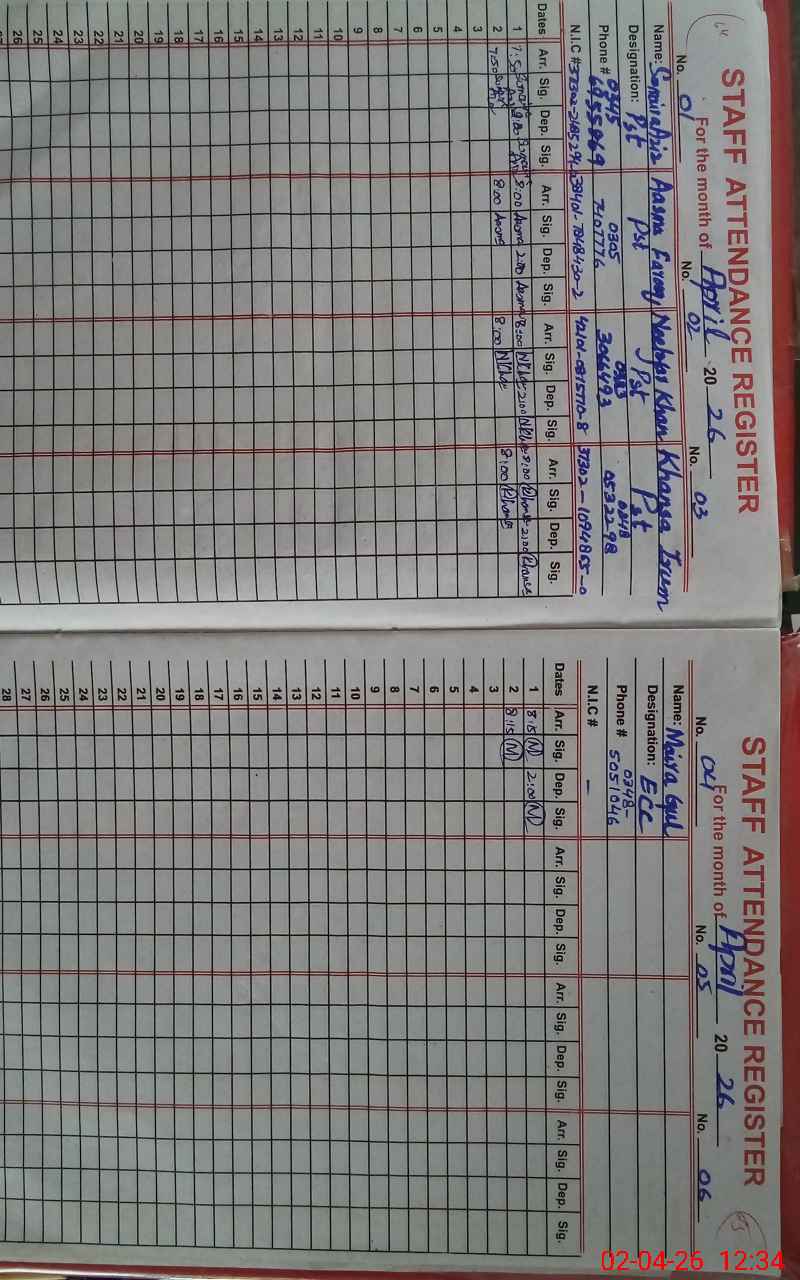 64
STAFF ATTENDANCE REGISTER
For the month of April 2026
No. 01 No. 02 No. 03
Name: Samina Aziz Aasma Farooq Khan Khansa Irum
Designation: Pst Pst Pst Pst
Phone # 0345 6955069 0305 7107776 0313 3066493 0348 0532298
N.I.C # 38401-7848430-2 42101-0815770-8 37302-1094865-0
Dates Arr. Sig. Dep. Sig. Arr. Sig. Dep. Sig. Arr. Sig. Dep. Sig. Arr. Sig. Dep. Sig.
1 7:50 8:00 Aasma 2:00 Aasma 8:00 2:00 8:00 Khansa 2:00 Khansa
2 7:50 8:00 Aasma 8:00 8:00 Khansa
3
4
5
6
7
8
9
10
11
12
13
14
15
16
17
18
19
20
21
22
23
24
25
26
27
STAFF ATTENDANCE REGISTER
For the month of April 2026
No. 04 No. 05 No. 06
Name: Maira Gul
Designation: ECC
Phone # 0348-5051046
N.I.C # —
Dates Arr. Sig. Dep. Sig. Arr. Sig. Dep. Sig. Arr. Sig. Dep. Sig. Arr. Sig. Dep. Sig.
1 8:15 M 2:00 M
2 8:15 M
3
4
5
6
7
8
9
10
11
12
13
14
15
16
17
18
19
20
21
22
23
24
25
26
27
28
02-04-26 12:34